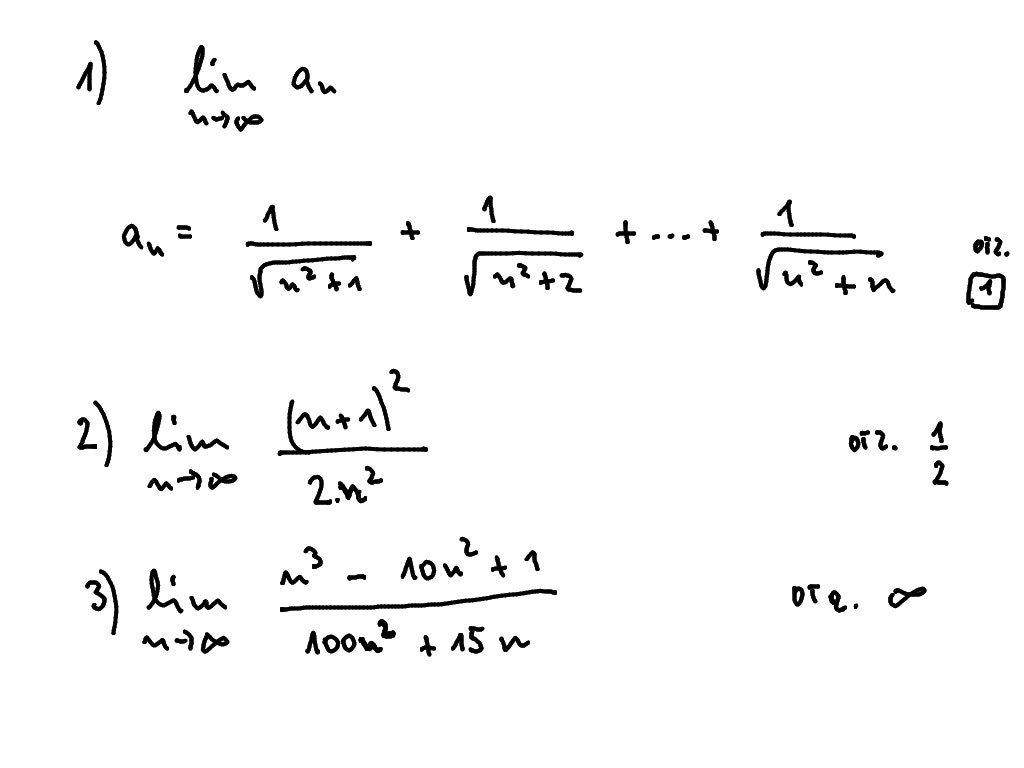 1) lim n→∞ aₙ
aₙ = 1/√(n²+1) + 1/√(n²+2) + ... + 1/√(n²+n) отг. 1
2) lim n→∞ (n+1)²/2.n² отг. 1/2
3) lim n→∞ (n³ - 10n² + 1)/(100n² + 15n) отг. ∞